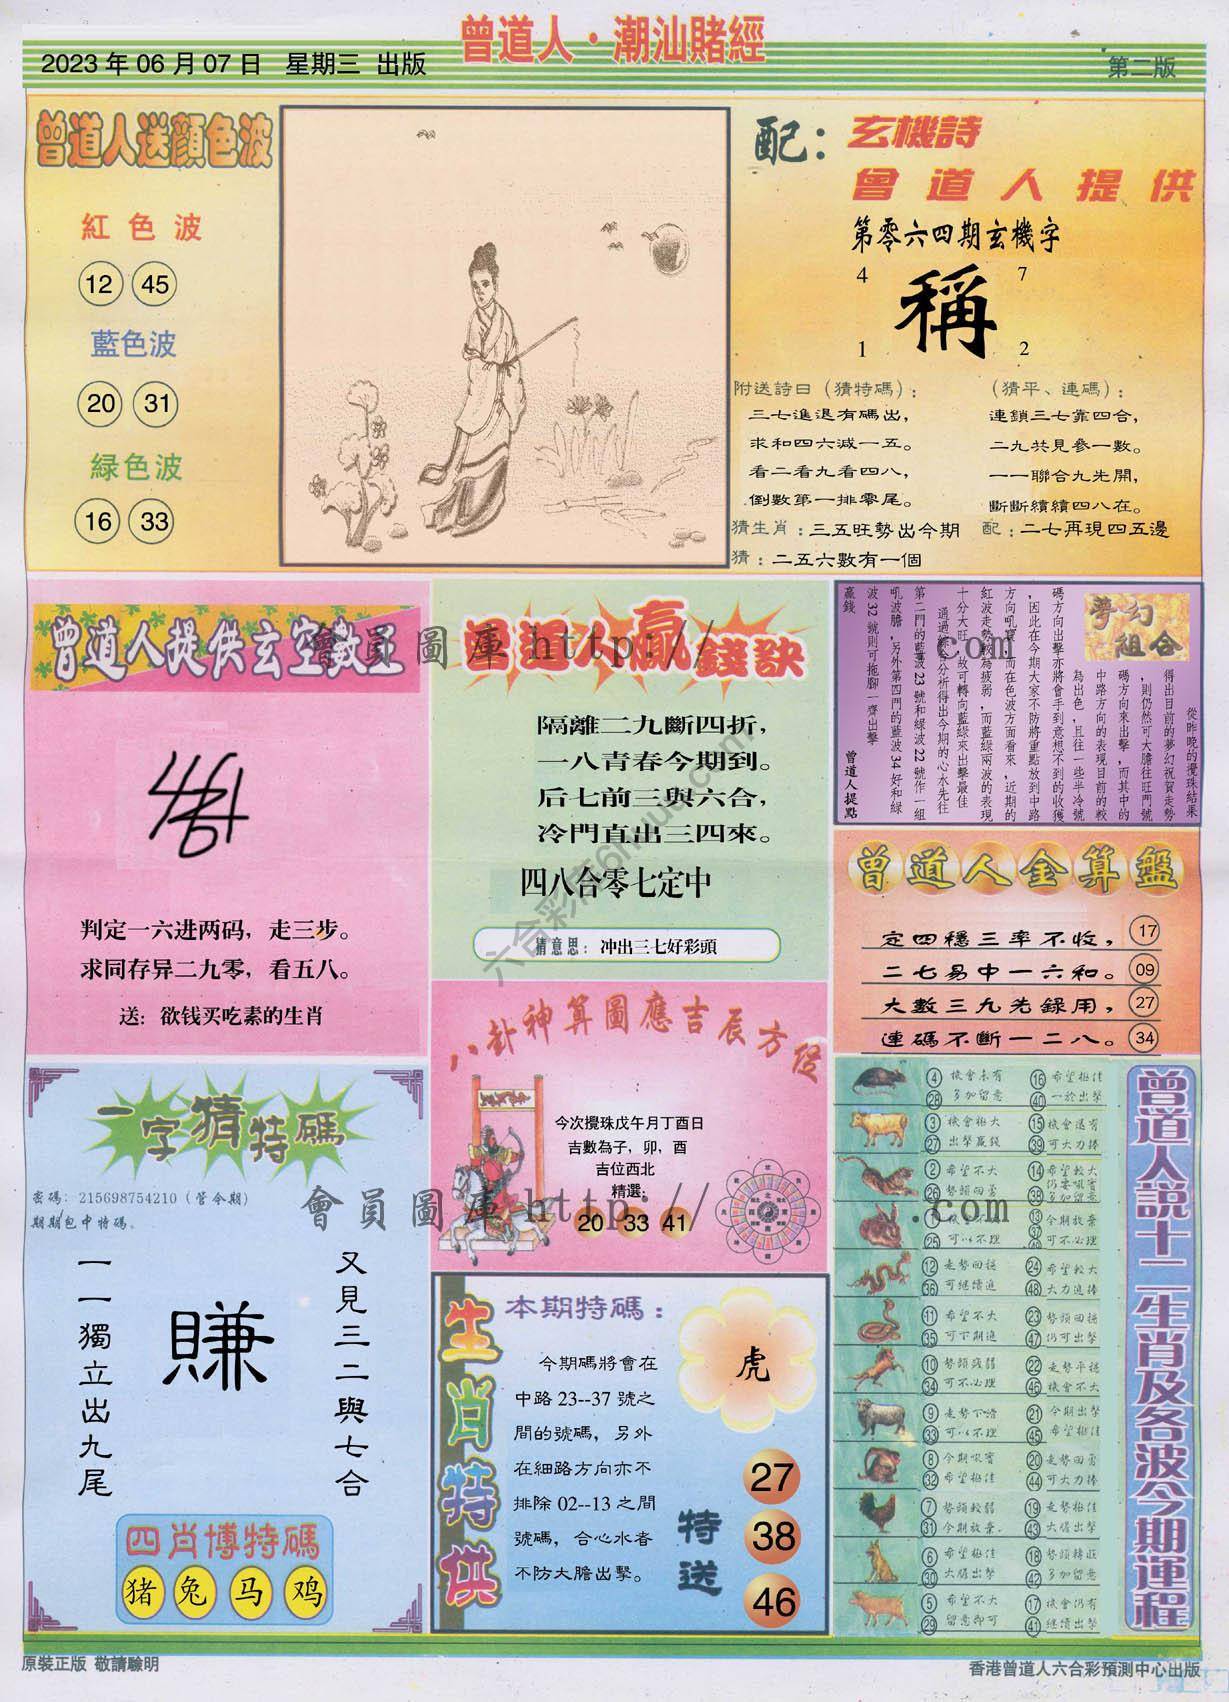 曾道人·潮汕賭經
2023年06月07日 星期三 出版
第二版
曾道人送顔色波
紅色波
12 45
藍色波
20 31
緑色波
16 33
配：玄機詩
曾道人提供
第零六四期玄機字
4 7
稱
1 2
附送詩日（猜特碼）：
三七進退有碼出，
求和四六減一五。
看二看九看四八，
倒數第一排零尾。
（猜平、連碼）：
連鎖三七靠四合，
二九共見參一數。
一一聯合九先開，
斷斷續續四八在。
猜生肖：三五旺勢出今期 配：二七再現四五邊
猜：二五六數有一個
曾道人提供玄空數王
判定一六进两码，走三步。
求同存异二九零，看五八。
送：欲钱买吃素的生肖
曾道人贏錢訣
隔離二九斷四折，
一八青春今期到。
后七前三與六合，
冷門直出三四來。
四八合零七定中
猜意思：冲出三七好彩頭
夢幻
組合
從昨晚的攪珠結果
得出目前的夢幻祝賀走勢
，則仍然可大膽往旺門號
碼方向來出擊，而其中的
中路方向的表現目前的較
為出色，且往一些半冷號
碼方向出擊亦將會手到意想不到的收獲
，因此在今期大家不防將重點放到中路
方向吼寶，而在色波方面看來，近期的
紅波走勢較為疲弱，而藍綠兩波的表現
十分大旺，故可轉向藍綠來出擊最佳
通過綜合分析得出今期的心水先往
第二門的藍波23號和綠波22號作一組
吼波膽，另外第四門的藍波34好和綠
波32號則可拖腳一齊出擊
贏錢 曾道人提點
曾道人金算盤
定四穩三率不收， 17
二七易中一六和。 09
大數三九先録用， 27
連碼不斷一二八。 34
八卦神算圖應吉辰方位
今次攪珠戊午月丁酉日
吉數為子，卯，酉
吉位西北
精選：
20 33 41
一字猜特碼
密碼：215698754210（管今期）
期期包中特碼。
又見三二與七合
賺
一一獨立出九尾
四肖博特碼
猪 兔 马 鸡
生肖特供
本期特碼：
今期碼將會在
中路23--37號之
間的號碼，另外
在細路方向亦不
排除02--13之間
號碼，合心水者
不防大膽出擊。
虎
特送
27
38
46
曾道人説十二生肖及各波今期運程
4 28 機會未有 多加留意 16 40 希望極佳 一於出擊
3 27 機會極大 出擊贏錢 15 39 機會還有 可大力捧
2 26 希望不大 勢頭回勇 14 38 希望較大 仍要吼實 多加留意
1 25 機會不大 可以不理 13 37 49 今期放棄 可不必理
12 36 走勢回穩 可繼續追 24 48 希望較大 大力追捧
11 35 希望不大 可下期追 23 47 勢頭回穩 仍可出擊
10 34 勢頭疲弱 可不必理 22 46 走勢平穩 機會不大
9 33 走勢下滑 可以不理 21 45 今期出擊 希望極佳
8 32 今期吼實 希望極佳 20 44 走勢回勇 可大力捧
7 31 勢頭較弱 今期放棄. 19 43 走勢極佳 大膽出擊
6 30 希望極佳 大膽出擊 18 42 勢頭轉旺 多加留意
5 29 希望不大 留意即可 17 41 機會仍有 繼續出擊
原裝正版 敬請驗明
香港曾道人六合彩預測中心出版
會員圖庫 http:// .com
會員圖庫 http:// .com